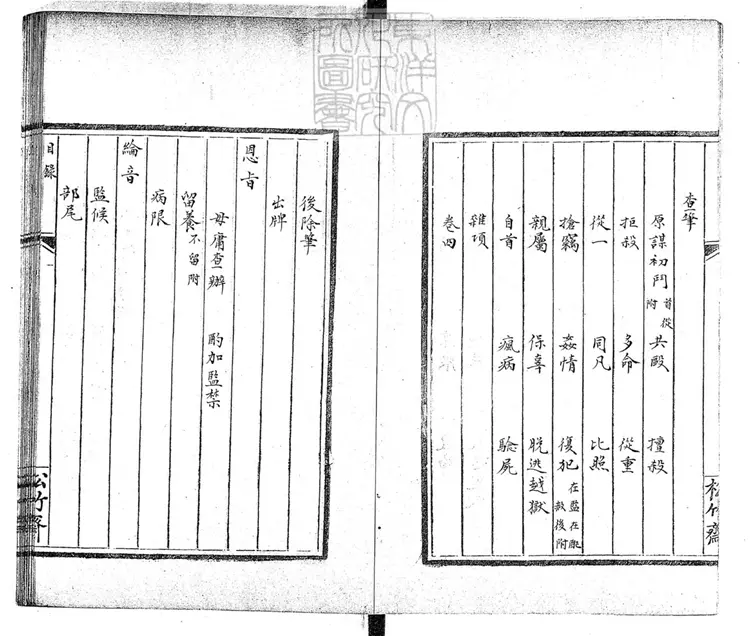 查筆
原謀初鬥 首從附 共毆 擅殺
拒殺 多命 從重
從一 同凡 比照
搶竊 姦情 復犯 在監在配赦後附
親屬 保辜 脫逃越獄
自首 瘋病 驗屍
雜項
卷四
後除筆
出牌
恩旨
毋庸查辦 酌加監禁
留養 不留附
病限
綸音
監候
部尾
目錄
松竹齋
松竹齋
東洋文化研究所圖書